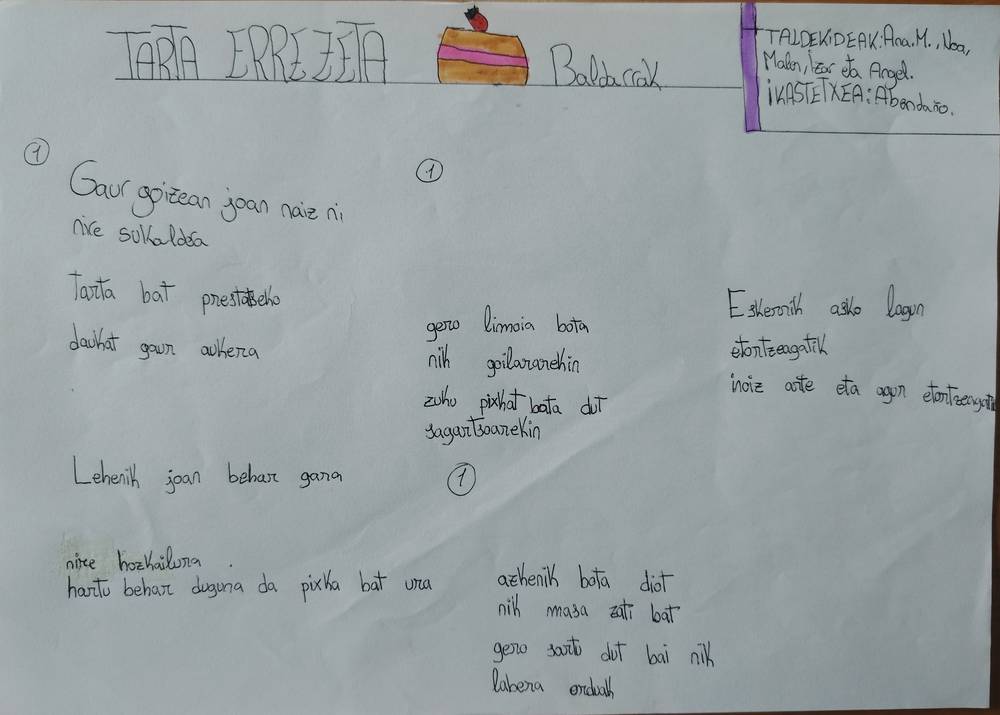 TARTA ERREZETA
Baldarrak
TALDEKiDEAK: Ana.M., Noa,
Malen, Izar eta Angel.
iKASTETXEA: Abendaño.
1
Gaur goizean joan naiz ni
nire sukaldea
Tarta bat prestatzeko
daukat gaur aukera
Lehenik joan behar gara
nire hozkailura.
hartu behar duguna da pixka bat ura
1
gero limoia bota
nik goilararekin
zuku pixkat bata dut
sagartsoarekin
1
azkenik bota diot
nik masa zati bat
gero sartu dut bai nik
labera orduak
Eskernik asko lagun
etortzeagatik
noiz arte eta agur etortzeagatik